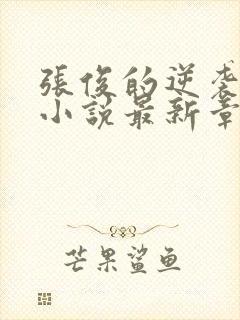 張俊的逆袭
小説最新章
芒果鲨鱼